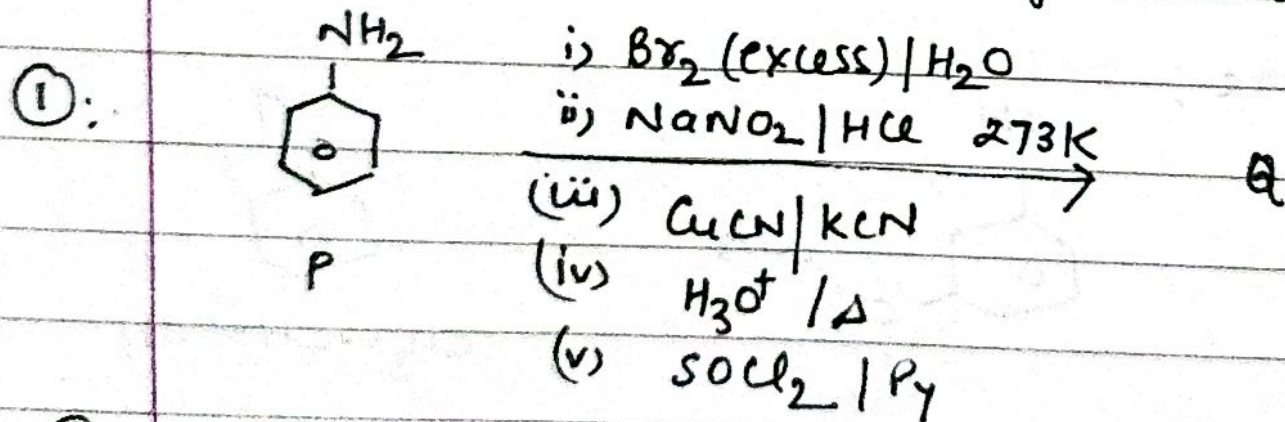 NH2
i) Br2 (excess) | H2O
①:
ii) NaNO2 | HCl 273K
Q
(iii) CuCN | KCN
P
(iv) H3O+ / Δ
(v) SOCl2 | Py